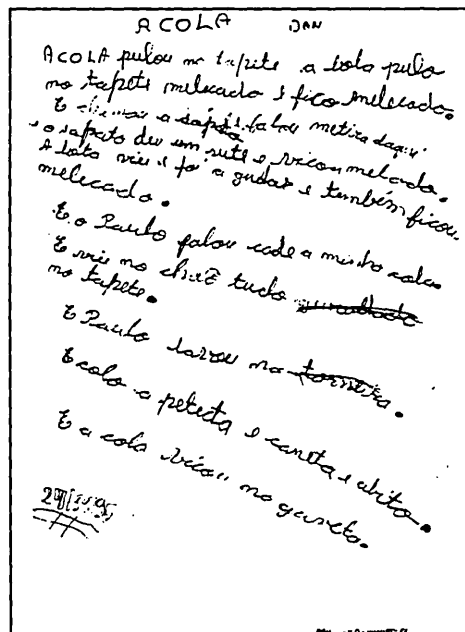 A COLA DAN
A COLA pulou no tapete a bota pulo
no tapete melecado e fico melecado.
E a falou metira daqui
o sapato deu um sute e vicou melado.
A bota viu e foi a gudar e também ficou
melecado.
E o Paulo falou cade a minha cola
E viu no chão tudo
no tapete.
E Paulo lavou na torneira.
E colo a peteta e caneta e
E a cola vicou no gaveta.